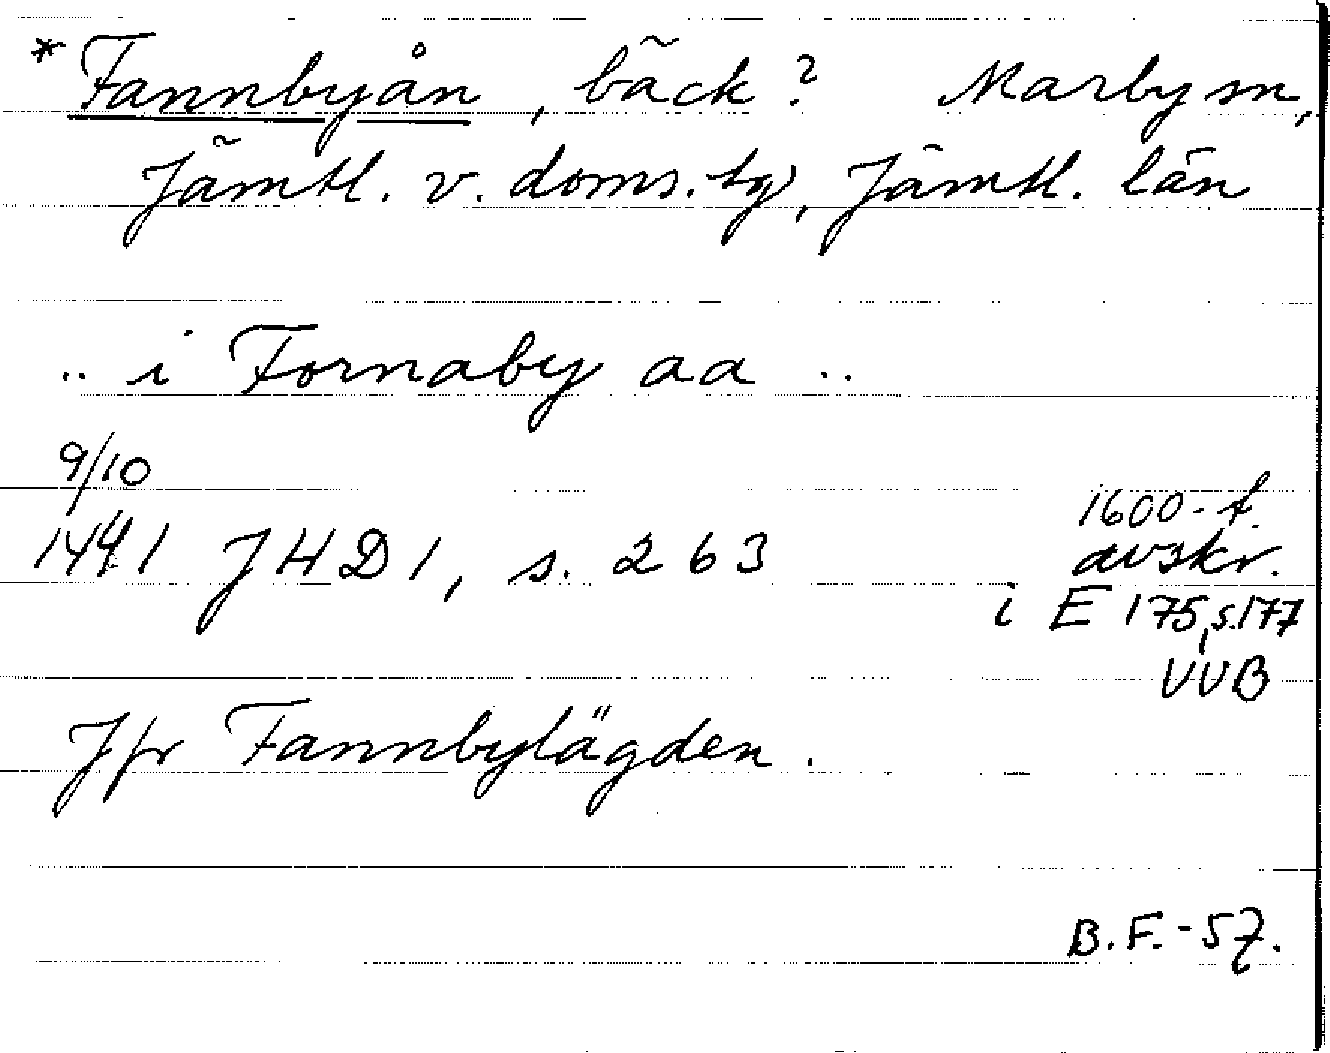 *Fannbyån, bäck? Marby sn,
Jämtl. v. doms.-tg, Jämtl. län
.. i Fornaby aa ..
9/10
1441 JHD 1, s. 263
1600-t.
avskr.
i E 175, s. 177
UUB
Jfr Fannbylägden.
B.F.-57.